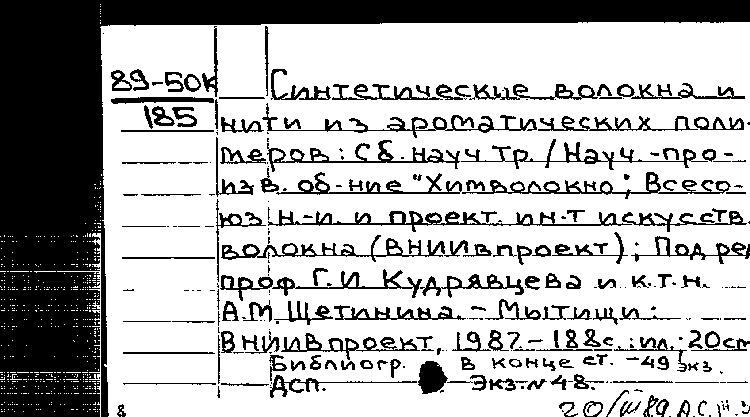 89-50к
185
Синтетические волокна и
нити из ароматических поли-
меров: Сб. науч тр. / Науч.-про-
изв. об-ние "Химволокно"; Всесо-
юз н.-и. и проект. ин-т искусств.
волокна (ВНИИВпроект); Под ред
проф. Г.И. Кудрявцева и к.т.н.
А.М. Щетинина. - Мытищи:
ВНИИВпроект, 1987. - 188с.: ил.: 20см
Библиогр. в конце ст. - 49 экз.
ДСП. Экз. N 48.
8 20/III 89 А.С.